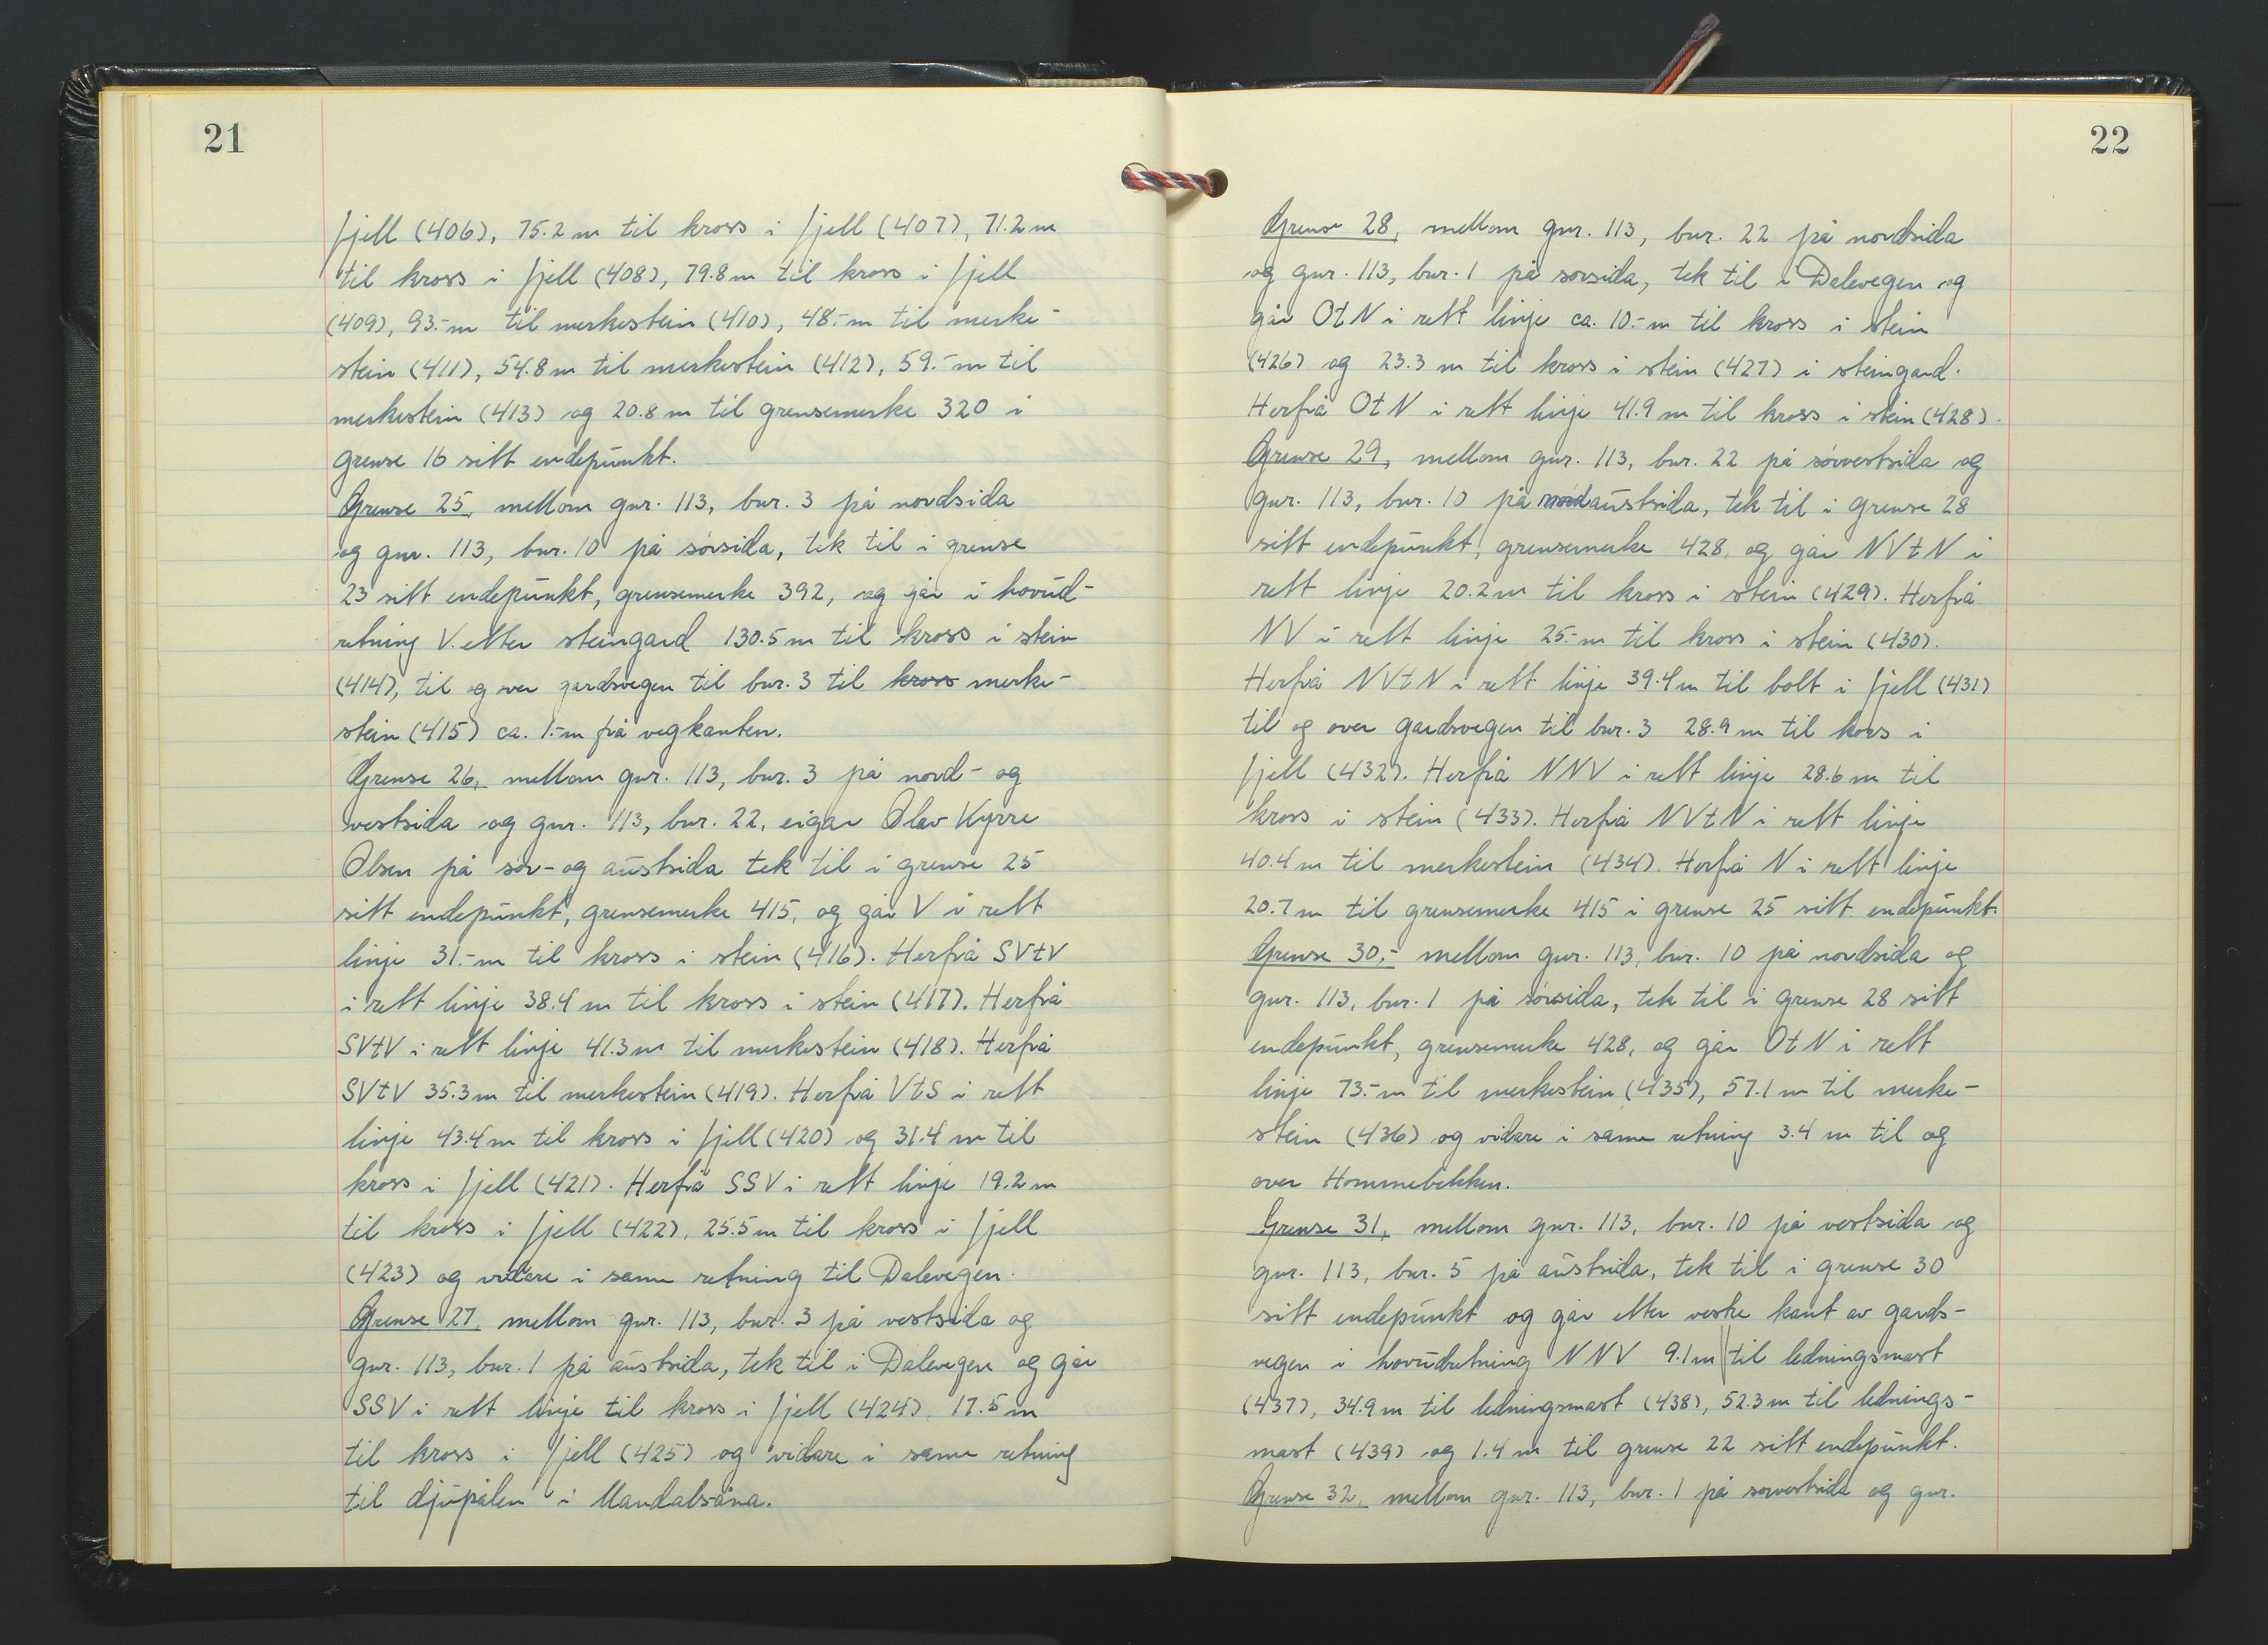 21
fjell (406), 75.2 m til kross i fjell (407), 71.2 m
til kross i fjell (408), 79.8 m til kross i fjell
(409), 93.- m til merkestein (410), 48.- m til merke-
stein (411), 54.8 m til merkestein (412), 59.- m til
merkestein (413) og 20.8 m til grensemerke 320 i
grense 16 sitt endepunkt.
Grense 25, mellom gnr. 113, bnr. 3 på nordsida
og gnr. 113, bnr. 10 på sørsida, tek til i grense
23 sitt endepunkt, grensemerke 392, og går i hovud-
retning V. etter steingard 130.5 m til kross i stein
(414), til og over gardsvegen til bnr. 3 til kross merke-
stein (415) ca. 1.- m frå vegkanten.
Grense 26, mellom gnr. 113, bnr. 3 på nord- og
vestsida og gnr. 113, bnr. 22, eigar Olav Kyrre
Olsen på sør- og austsida tek til i grense 25
sitt endepunkt, grensemerke 415, og går V i rett
linje 31.- m til kross i stein (416). Herfrå SVtV
i rett linje 38.4 m til kross i stein (417). Herfrå
SVtV i rett linje 41.3 m til merkestein (418). Herfrå
SVtV 35.3 m til merkestein (419). Herfrå VtS i rett
linje 43.4 m til kross i fjell (420) og 31.4 m til
kross i fjell (421). Herfrå SSV i rett linje 19.2 m
til kross i fjell (422), 25.5 m til kross i fjell
(423) og vidare i same retning til Dalevegen.
Grense 27, mellom gnr. 113, bnr. 3 på vestsida og
gnr. 113, bnr. 1 på austsida, tek til i Dalevegen og går
SSV i rett linje til kross i fjell (424), 17.5 m
til kross i fjell (425) og vidare i same retning
til djupålen i Mandalsåna.
22
Grense 28, mellom gnr. 113, bnr. 22 på nordsida
og gnr. 113, bnr. 1 på sørsida, tek til i Dalevegen og
går OtN i rett linje ca. 10.- m til kross i stein
(426) og 23.3 m til kross i stein (427) i steingard.
Herfrå OtN i rett linje 41.9 m til kross i stein (428).
Grense 29, mellom gnr. 113, bnr. 22 på sørvestsida og
gnr. 113, bnr. 10 på nordaustsida, tek til i grense 28
sitt endepunkt, grensemerke 428, og går NVtN i
rett linje 20.2 m til kross i stein (429). Herfrå
NV i rett linje 25.- m til kross i stein (430).
Herfrå NVtN i rett linje 39.4 m til bolt i fjell (431)
til og over gardsvegen til bnr. 3 28.9 m til kors i
fjell (432). Herfrå NNV i rett linje 28.6 m til
kross i stein (433). Herfrå NVtN i rett linje
40.4 m til merkestein (434). Herfrå N i rett linje
20.7 m til grensemerke 415 i grense 25 sitt endepunkt.
Grense 30,- mellom gnr. 113, bnr. 10 på nordsida og
gnr. 113, bnr. 1 på sørsida, tek til i grense 28 sitt
endepunkt, grensemerke 428, og går OtN i rett
linje 73.- m til merkestein (435), 57.1 m til merke-
stein (436) og vidare i same retning 3.4 m til og
over Hommebekken.
Grense 31, mellom gnr. 113, bnr. 10 på vestsida og
gnr. 113, bnr. 5 på austsida, tek til i grense 30
sitt endepunkt og går etter vestre kant av gards-
vegen i hovudretning NNV 9.1 m til ledningsmast
(437), 34.9 m til ledningsmast (438), 52.3 m til lednings-
mast (439) og 1.4 m til grense 22 sitt endepunkt.
Grense 32, mellom gnr. 113, bnr. 1 på sørvestsida og gnr.